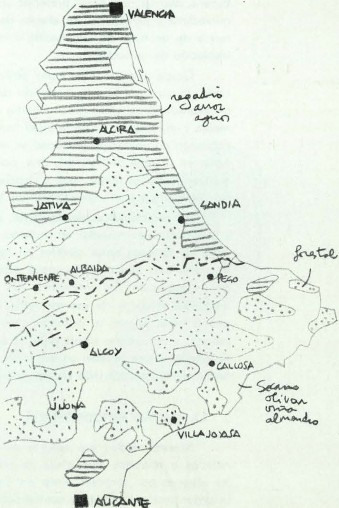 VALENCIA
regadío
arroz
agrios
ALCIRA
JATIVA
GANDIA
forestal
ONTENIENTE
ALBAIDA
PEGO
ALCOY
CALLOSA
Secano
olivar
viña
almendro
JIJONA
VILLAJOYOSA
ALICANTE